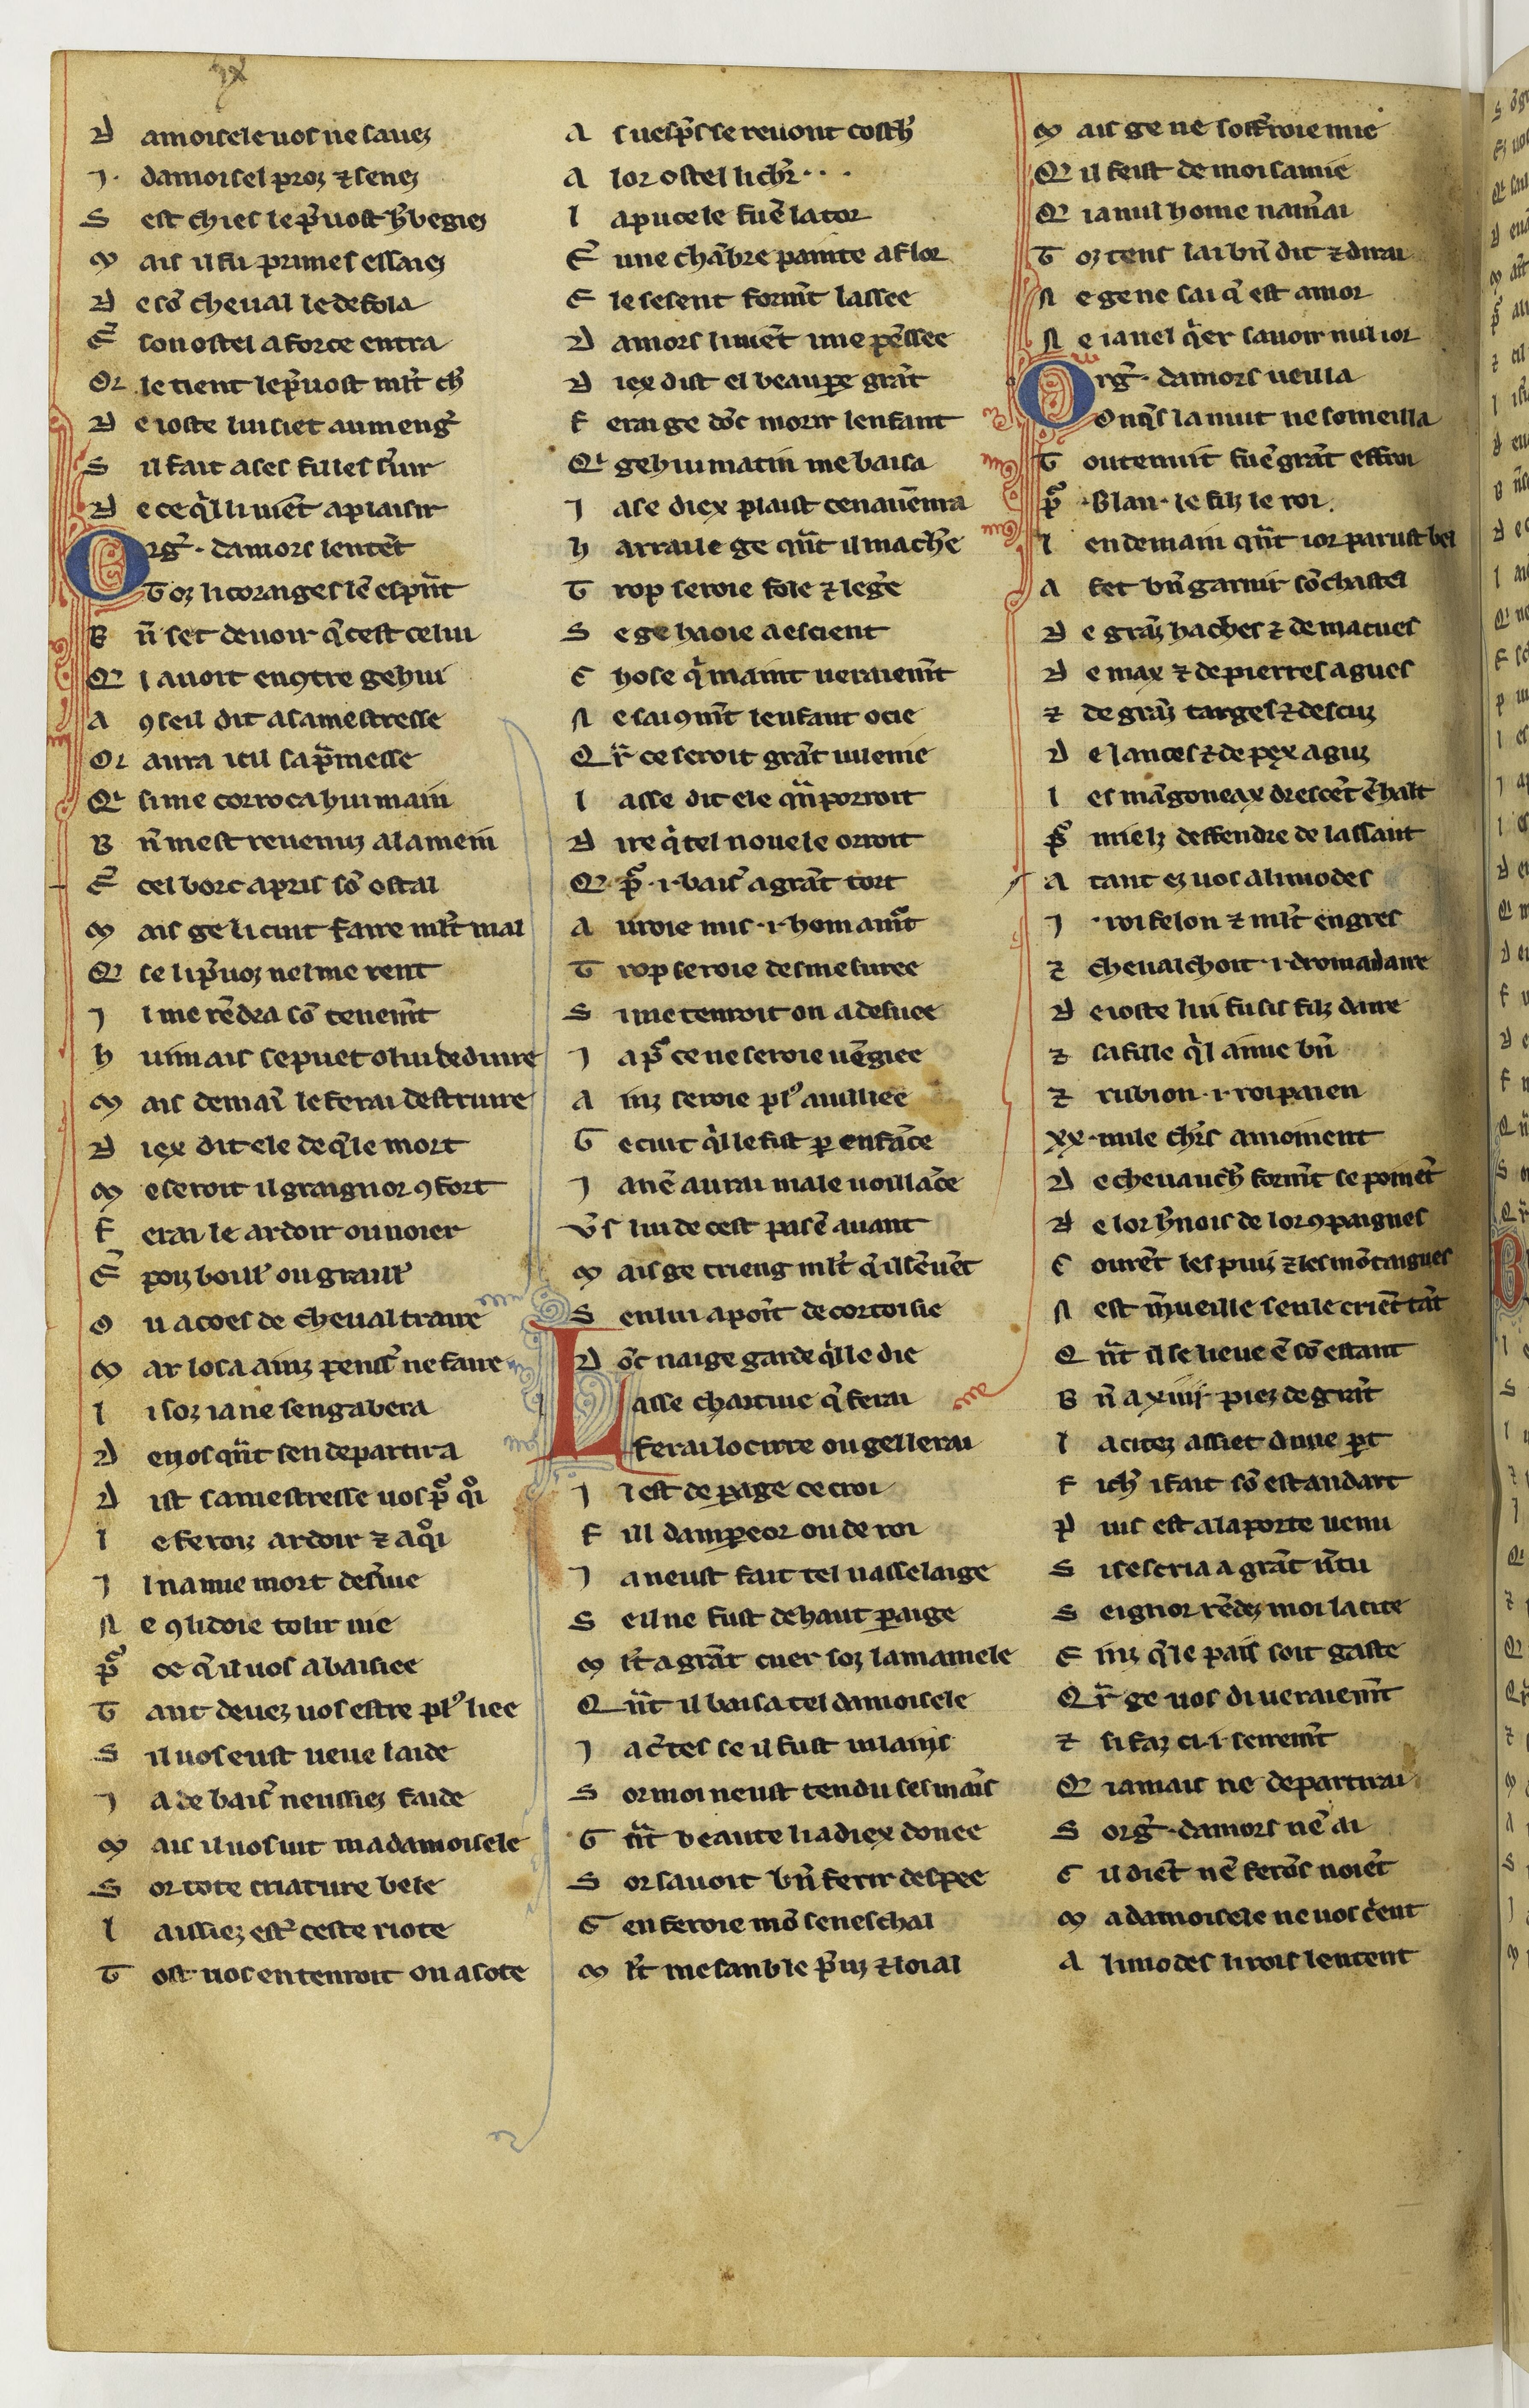 D amoisele uos ne sauez
.I. damoisel proz ⁊ senez
S est chies le p̃uost h̃begiez
M ais il fu primes essaiez
D e sõ cheual le defola
E ñ son ostel a force entra
Or le tient le p̃uost ml̃t ch̃
D e ioste lui siet au meng̃
S il fait a ses filles s̃uir
D e ce q̃l li uiẽt a plaisir
Org̃. damors lentẽt
Toz li corages lẽ esprẽt
B ñ set deuoir q̃ cest celui
Q i auoit encõtre gehui
A ꝯseil dit a sa mestresse
Or aura icil sa p̃messe
Q i si me corroca hui main
B ñ mest reuenuz a la mein
E ñ cel borc a pris sõ ostal
M ais ge li cuit faire ml̃t mal
Q e se li p̃uoz nel me rent
I l me rẽdra sõ teuemẽt
H uimais se puet o lui deduire
M ais demaĩ le ferai destruire
D iex dit ele de q̃le mort
M e seroit il graignor ꝯfort
F erai le ardoir ou noier
E ñ poiz boulir ou graillir
O u a coes de cheual traire
M ar losa ainz penser ne faire
I l soz ia ne sen gabera
D euos q̃nt sen departira
D ist sa mestresse uos por q̃i
L e feroiz ardoir ⁊ a q̃i
I l na mie mort des̃uie
N e ꝯ li doie tolir uie
P or ce q̃ il uos a baisiee
T ant deuez uos estre plꝰ liee
S il uos eust ueue laide
I a de baisier neussiez faide
M ais il uos uit ma damoisele
S or tote criature bele
L aissiez estr̃ ceste riote
T ost uos en tenroit on a sote
A s uesp̃s se reuont cosch̃
A lor ostel li ch̃r...
L a pucele fu ẽ la tor
E ñ une chãbre painte a flor
E le se sent formt̃ lassee
D amors li uiẽt une pẽssee
D iex dist el beau pere grãt
F erai ge dõc morir lenfant
Qi gehui matin me baisa
I a se diex plaist ce nauẽnra
H arraie ge q̃nt il ma ch̃e
T rop seroie fole ⁊ leg̃e
S e ge haoie a escient
C hose q̃ maint ueraiemt̃
N e sai ꝯmt̃ lenfant ocie
Q r̃ ce seroit grãt uilenie
L asse dit ele q̃m porroit
D ire q̃ tel nouele orroit
Q e por .i. baisier a grãt tort
A uroie mis .i. home a mort
T rop seroie desmesuree
S i me tenroit on a desuee
I a por ce ne seroie uẽgiee
A inz seroie plꝰ auilliee
G e cuit q̃l le fist por enfãce
I a nẽ aurai male uoillãce
V̾s lui de cest pas ẽ auant
M ais ge crieng ml̃t q̃ il sẽ uẽt
S en lui a poĩt de cortoisie
D õc nai ge garde q̃l le die
Lasse chaitiue q̃ ferai
Ferai locirre ou gel lerai
I l est de page ce croi
F ill dampereor ou de roi
I a neust fait tel uasselaige
S e il ne fust de haut paraige
M l̃t a grãt cuer soz la mamele
Q nt̃ il baisa tel damoisele
I a c̃tes se il fust uilains
S or moi neust tendu ses mains
G rãt beaute li a diex donee
S or sauoit bñ ferir despee
G en feroie mõ seneschal
M l̃t me sanble p̃uz ⁊ loial
M ais ge ne soffroie mie
Q il feist de moi samie
Q i a nul home namai
T oz tens lai bñ dit ⁊ dirai
N e ge ne sai q̃ est amor
N e ia nel q̃er sauoir nul ior
Org̃. damors ueilla
Onq̃s la nuit ne someilla
Toute nuit fu ẽ grãt effroi
P or .Blan. le filz le roi.
L endemain q̃nt ior parust bel
A fet bñ garnir sõ chastel
D e grãz haches ⁊ de macues
D e max ⁊ de pierres agues
⁊ de grãz targes ⁊ descuz
D e lances ⁊ de pex aguz
L es mãgoneax drescẽt ẽ halt
P or mielz deffendre de lassaut
A tant ez uos alimodes
.I. roi felon ⁊ ml̃t engres
⁊ cheuaichoit .i. dromadaire
D e ioste lui fu sis filz daire
⁊ sa fille q̃l aime bñ
⁊ rubion .i. roi paien
XX. mile ch̃rs amoinent
D e cheuauch̃ formt̃ se poinẽt
D e lor h̃nois de lor ꝯpaignes
C ourẽt les puiz ⁊ les mõtaignes
N est m̃ueille se ule criẽt tãt
Q nt̃ il se lieue ẽ sõ estant
B ñ a xiiii. piez de grãt
L a citez assiet dune part
F ich̃ i fait sõ estandart
P uis est a la porte uenu
S i sescria a grãt ũtu
S eignor rẽdez moi la cite
E inz q̃ le pais soit gaste
Q r̃ ge uos di ueraiemt̃
⁊ si faz ci .i. seremt̃
Q e iamais ne departirai
S org̃. damors nẽ ai
C il diẽt nẽ ferõs noiẽt
M a damoisele ne uos crient
A limodes li rois lentent